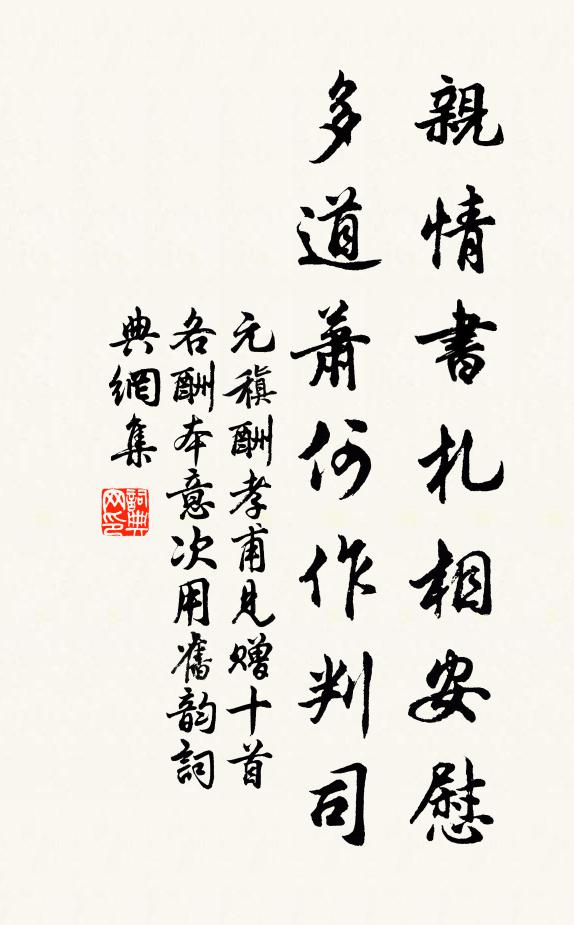 親情書札相安慰
多道蕭何作判司
元稹酬孝甫見贈十首
各酬本意次用舊韵詞
典網集
詞典
网印